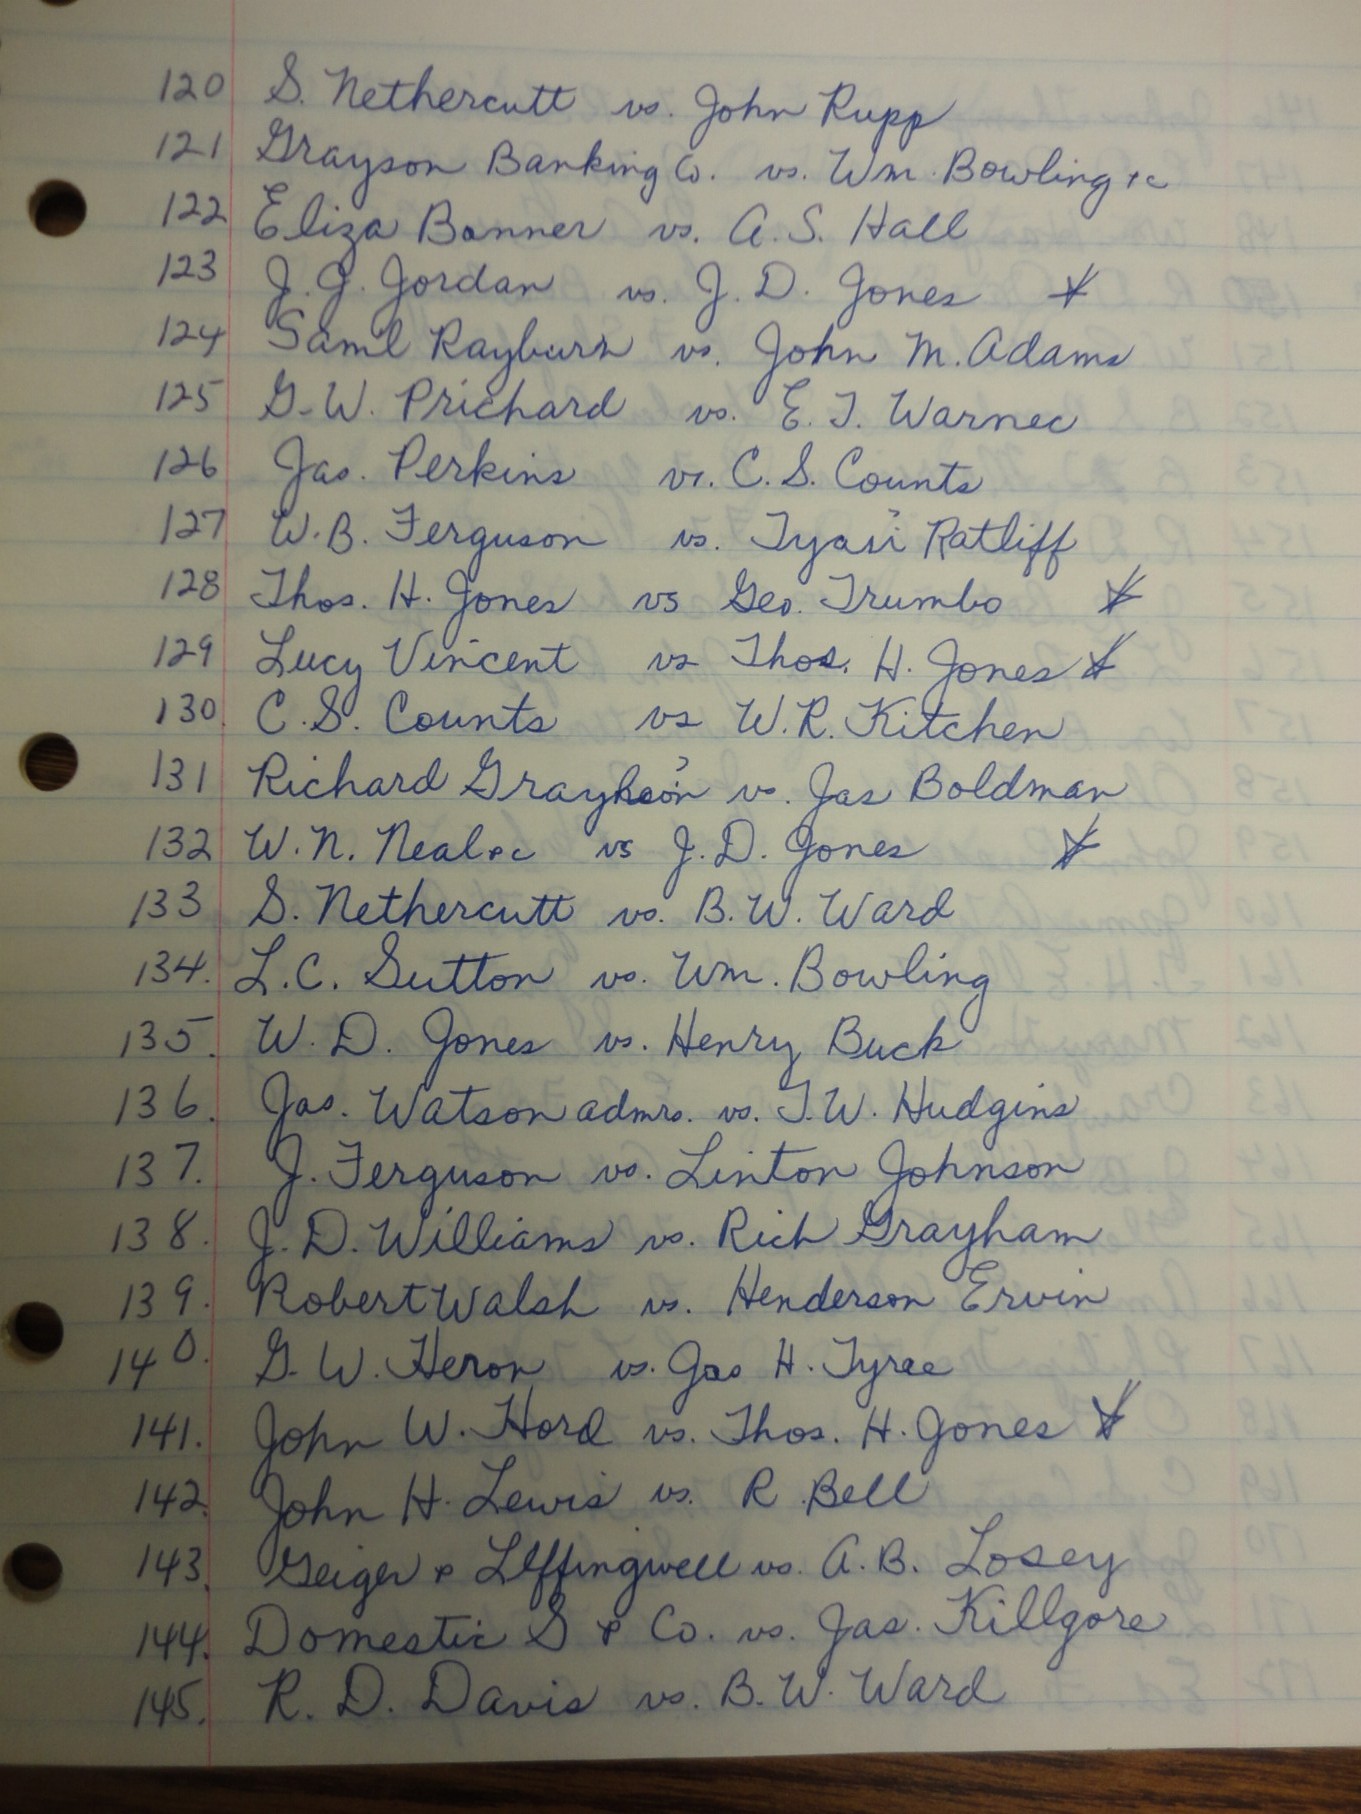 120 S. Nethercutt vs. John Rupp
121 Grayson Banking Co. vs. Wm. Bowling &c
122 Eliza Banner vs. A. S. Hall
123 J. G. Jordan vs. J. D. Jones *
124 Saml Rayburn vs. John M. Adams
125 G. W. Prichard vs. E. T. Warnec
126 Jas. Perkins vs. C. S. Counts
127 W. B. Ferguson vs. Ratliff
128 Thos. H. Jones vs Geo. Trumbo *
129 Lucy Vincent vs Thos. H. Jones *
130. C. S. Counts vs W. R. Kitchen
131 Richard vs. Jas Boldman
132 W. N. Neal &c vs J. D. Jones *
133 S. Nethercutt vs. B. W. Ward
134. L. C. Sutton vs. Wm. Bowling
135. W. D. Jones vs. Henry Buck
136. Jas. Watson admrs. vs. T. W. Hudgins
137. J. Ferguson vs. Linton Johnson
138. J. D. Williams vs. Rich Grayham
139. Robert Walsh vs. Henderson Ervin
140. G. W. Heron vs. Jas H. Tyree
141. John W. Hord vs. Thos. H. Jones *
142. John H. Lewis vs. R. Bell
143. Geiger & Leffingwell vs. A. B. Losey
144. Domestic S & Co. vs. Jas. Killgore
145. R. D. Davis vs. B. W. Ward